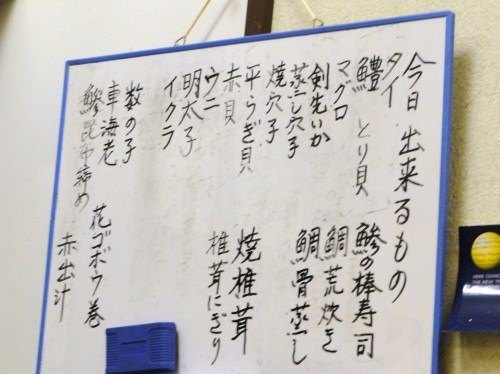 今日出来るもの
タイ
鱧 とり貝
マグロ
剣先いか
蒸し穴子
焼穴子
平らぎ貝
赤貝
ウニ
明太子
イクラ
数の子
車海老
鯵昆布締め
鯵の棒寿司
鯛荒炊き
鯛骨蒸し
焼椎茸
椎茸にぎり
花ゴボウ巻
赤出汁